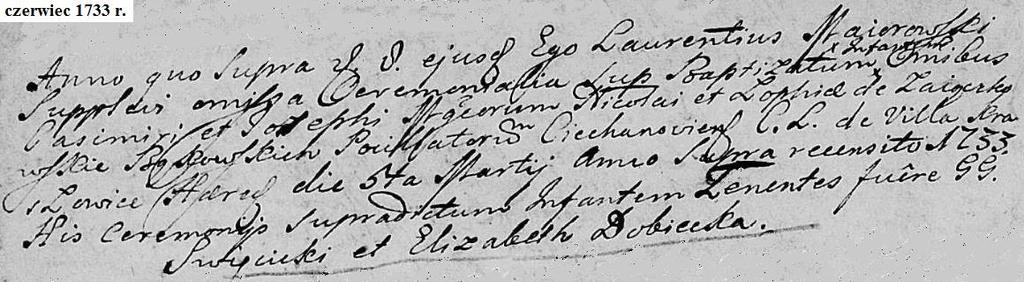 czerwiec 1733 r.
Anno quo supra d. 8. ejusd Ego Laurentius Maierowski
Supplevi omissa Ceremonialia sup Baptizatum Infantem Omnibus
Casimiri et Josephi Mgcorum Nicolai et Zophiæ de
wskie Bąkowskich Ciechanovien C. L. de Villa Kra
szewice Hæred die 5ta Martij anno supra recensito 1733.
His ceremonijs supradictum Infantem Tenentes fuêre GG.
Swycicki et Elizabeth Dobiecka.